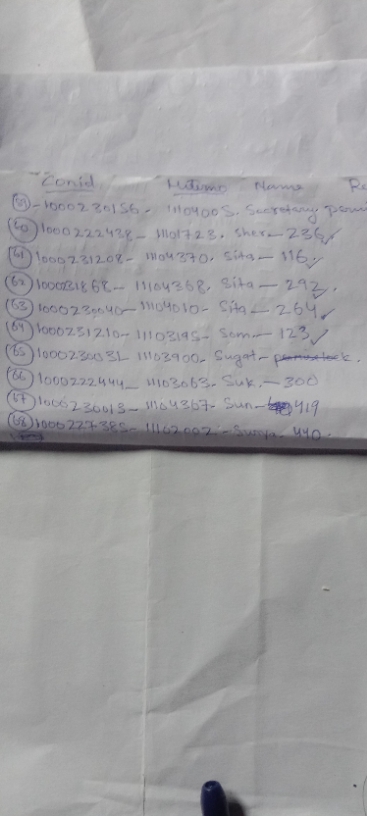 Conid Mtrno Name
(59) - 1000230156 - 11104005. Secretary.
(60) 1000222438 - 1101723. Sher - 236 ✓
(61) 1000231208 - 1104370. Sita - 116 ✓
(62) 100031868 - 11104368. Sita - 292 ✓
(63) 1000230040 - 11104010 - Sita - 264 ✓
(64) 1000231210 - 11103195 - Som - 123 ✓
(65) 1000230031 - 11103900 - Sugat -
(66) 1000222444 - 11103063 - Suk. - 300
(67) 1000230013 - 11104367 - Sun - 419
(68) 1000227385 - 11102002 - Surya - 440.